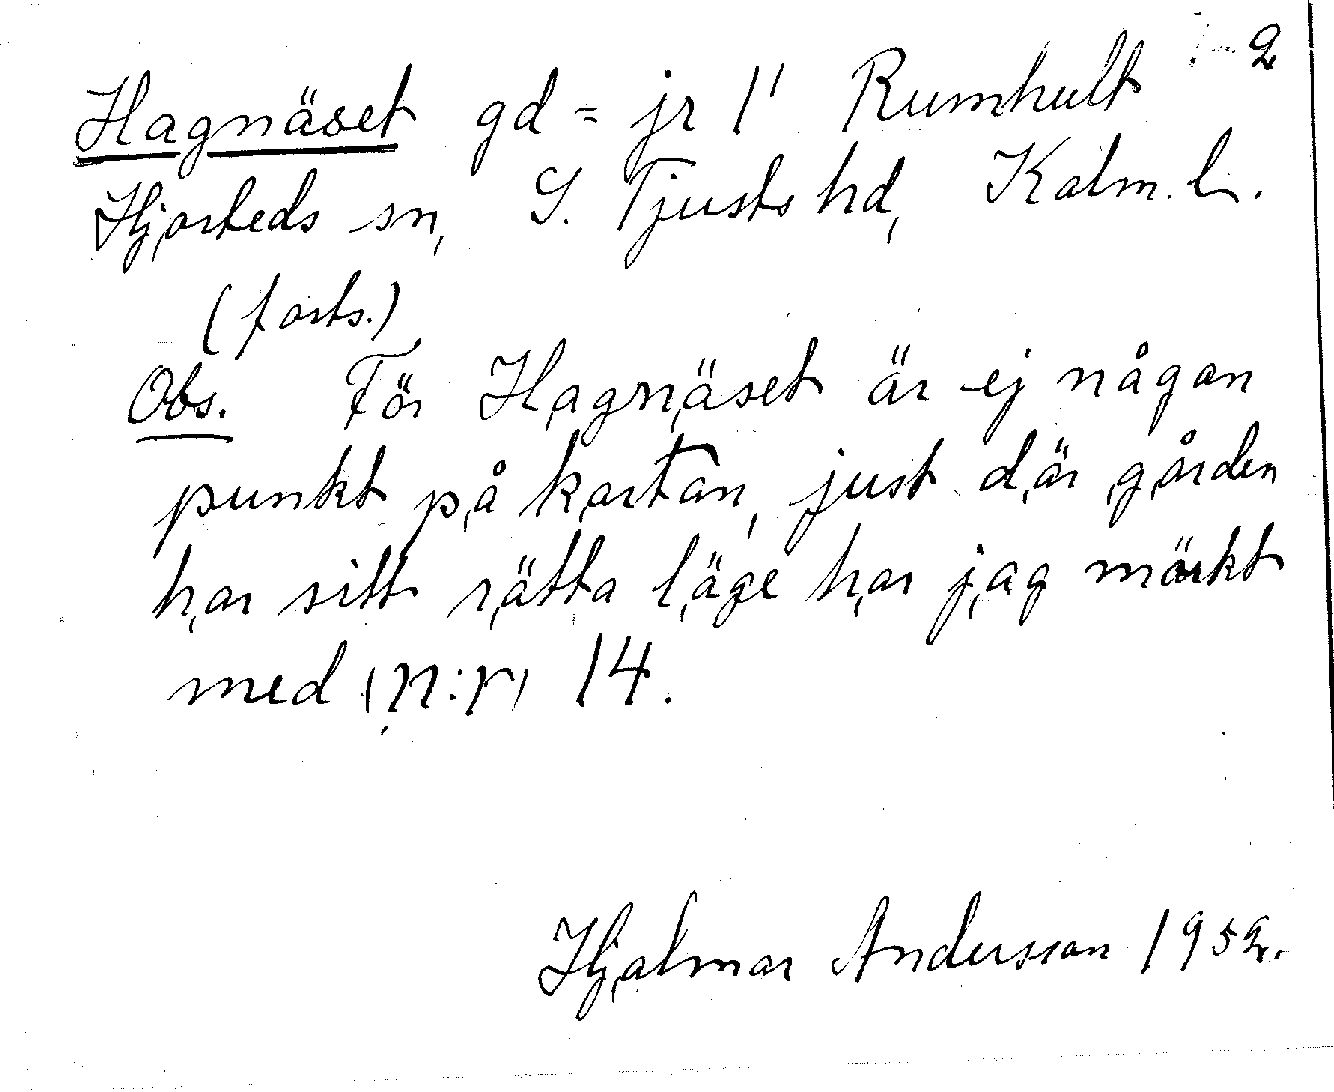 2
Hagnäset gd = jr 1¹ Rumhult
Hjorteds sn, S. Tjusts hd, Kalm. l.
(forts.)
Obs. För Hagnäset är ej någon
punkt på kartan, just där gården
har sitt rätta läge har jag märkt
med (n:r) 14.
Hjalmar Andersson 1952.